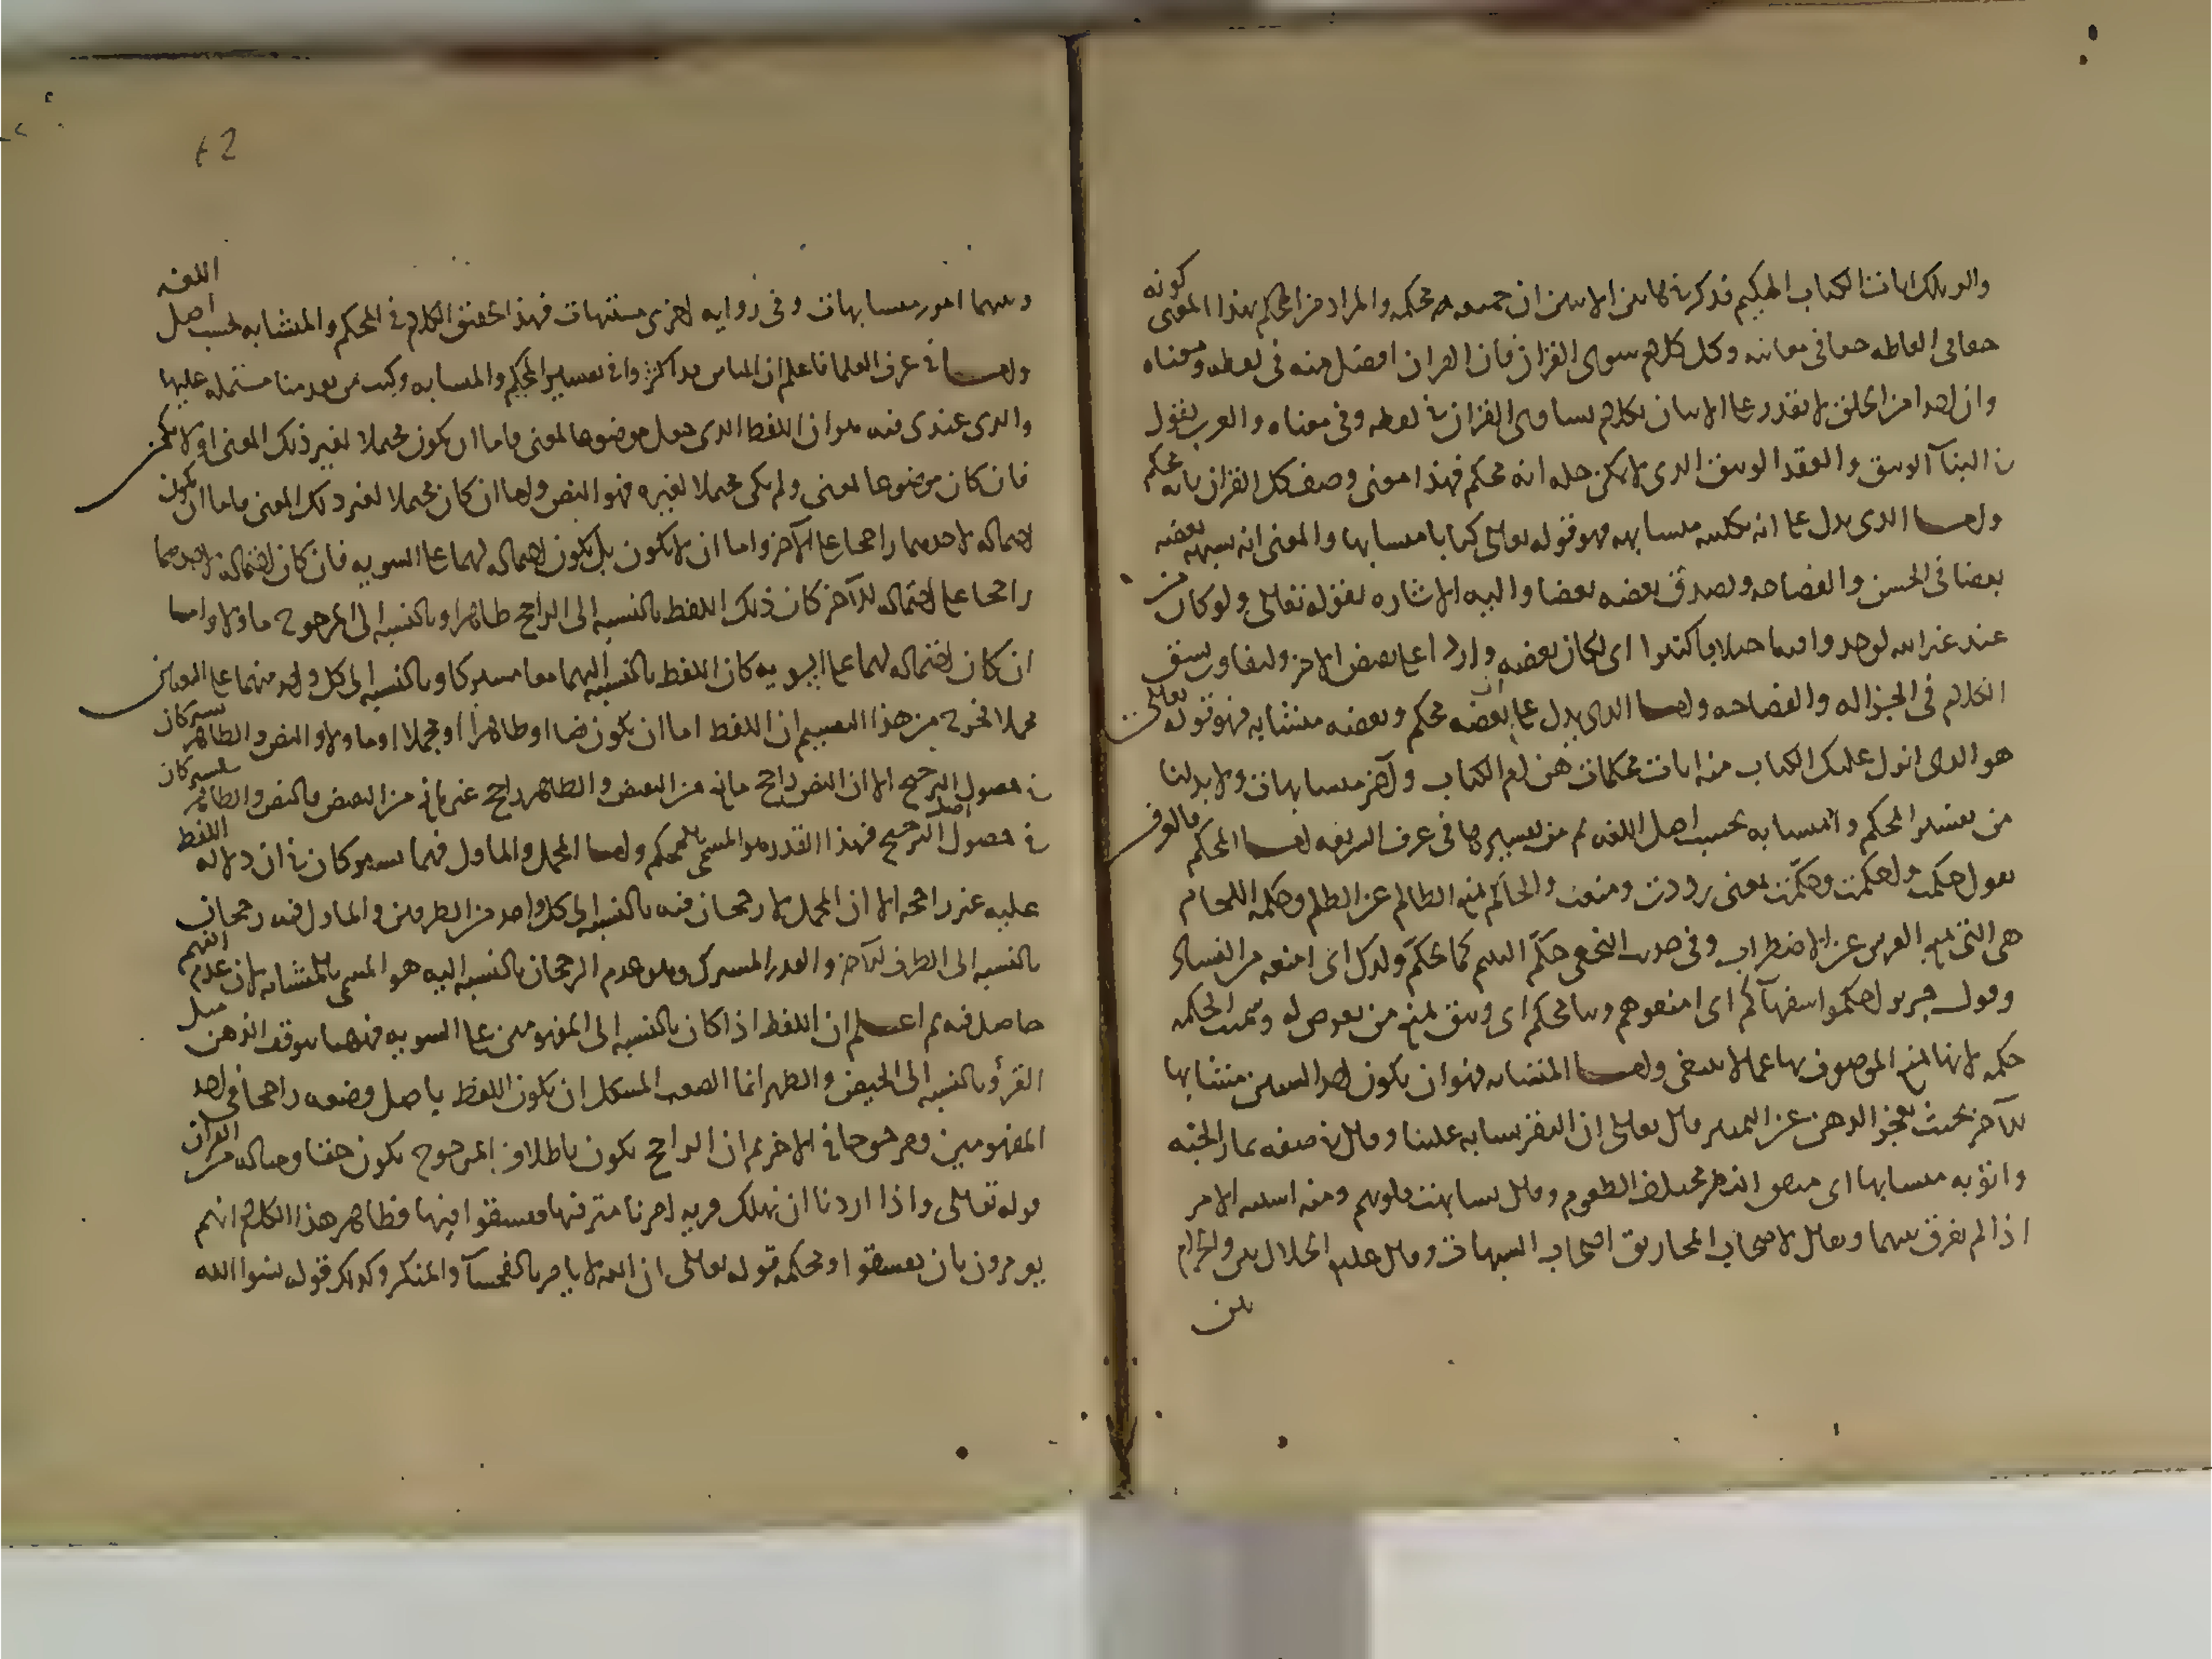 والر تلك ايات الكتاب الحكيم فذكر في هاتين الايتين ان جميعه محكم والمراد من المحكم بهذا المعنى كونه
حقا في الفاظه حقا في معانيه وكل كلام سوى القران فان القران افضل منه في لفظه ومعناه
وان احدا من الخلق لا يقدر على الاتيان بكلام يساوي القران في لفظه وفي معناه والعرب تقول
في البنآ الوثيق والعقد الوثيق الذي لا يمكن حله انه محكم فهذا معنى وصف كل القران بانه محكم
واما الذي يدل على انه بكليته متشابه فهو قوله تعالى كتابا متشابها والمعنى انه يشبه بعضه
بعضا في الحسن والفصاحه ويصدق بعضه بعضا واليه الاشاره بقوله تعالى ولو كان من
عند غير الله لوجدوا فيه اختلافا كثيرا اى لكان بعضه واردا على نقض الاخر ولتفاوت نسق
الكلام في الجزاله والفصاحه واما الذي يدل على ان بعضه محكم وبعضه متشابه فهو قوله تعالى
هو الذى انزل عليك الكتاب منه ايات محكمات هن ام الكتاب واخر متشابهات ولا بد لنا
من تفسير المحكم والمتشابه بحسب اصل اللغه ثم من تفسيرها في عرف الشريعه اما المحكم فالعرب
تقول حكمت واحكمت وحكّمت بمعنى رددت ومنعت والحاكم يمنع الظالم عن الظلم وحكمه اللجام
هى التي تمنع الفرس عن الاضطراب وفي حديث النخعي حكّم اليتيم كما تحكّم ولدك اى امنعه من الفساد
وقول جرير احكموا سفهآكم اى امنعوهم وبنا محكم اى وثيق يمنع من تعرض له وسميت الحكمه
حكمه لانها تمنع الموصوف بها عما لا ينبغى واما المتشابه فهو ان يكون احد الشيئين مشابها
للآخر بحيث يعجز الذهن عن التمييز قال تعالى ان البقر تشابه علينا وقال في صفه ثمار الجنه
واتوا به متشابها اى متفق المنظر مختلف الطعوم وقال تشابهت قلوبهم ومنه اشتبه الامر
اذا لم يفرق بينهما ويقال لاصحاب المخاريق اصحاب الشبهات وقال عليه الحلال بين والحرام
بين
وبينهما امور متشابهات وفى روايه اخرى مشتبهات فهذا تحقيق الكلام في المحكم والمتشابه بحسب اصل اللغه
واما في عرف العلما فاعلم ان الناس قد اكثروا في تفسير المحكم والمتشابه وكتب من تقدمنا مشتمله عليها
والذى عندى فيه هو ان اللفظ الذى جعل موضوعا لمعنى فاما ان يكون محتملا لغير ذلك المعنى او لا يكون
فان كان موضوعا لمعنى ولم يكن محتملا لغيره فهو النص واما ان كان محتملا لغير ذلك المعنى فاما ان يكون
احتماله لاحدهما راجحا على الآخر واما ان لا يكون بل يكون احتماله لهما على السويه فان كان احتماله لاحدهما
راجحا على احتماله للآخر كان ذلك اللفظ بالنسبه الى الراجح ظاهرا وبالنسبه الى المرجوح ماولا واما
ان كان احتماله لهما على السويه كان اللفظ بالنسبه اليهما معا مشتركا وبالنسبه الى كل واحد منهما على التعيين
مجملا فخرج من هذا التقسيم ان اللفظ اما ان يكون نصا او ظاهرا او مجملا او ماولا والنص والظاهر يشتركان
في حصول الترجيح الا ان النص راجح مانع من النقيض والظاهر راجح غير مانع من النقيض فالنص والظاهر يشتركان
في حصول اصل الترجيح فهذا القدر هو المسمى بالمحكم واما المجمل والماول فهما يشتركان في ان دلاله اللفظ
عليه غير راجحه الا ان المجمل لا رجحان فيه بالنسبه الى كل واحد من الطرفين والماول فيه رجحان
بالنسبه الى الطرف الآخر والقدر المشترك وهو عدم الرجحان بالنسبه اليه هو المسمى بالمتشابه لان عدم الفهم
حاصل فيه ثم اعلم ان اللفظ اذا كان بالنسبه الى المفهومين على السويه فههنا يتوقف الذهن مثل
القرؤ بالنسبه الى الحيض والطهر انما الصعب المشكل ان يكون اللفظ باصل وضعه راجحا في احد
المفهومين ومرجوحا في الاخر ثم ان الراجح يكون باطلا والمرجوح يكون حقا ومثاله من القرآن
قوله تعالى واذا اردنا ان نهلك قريه امرنا مترفيها ففسقوا فيها فظاهر هذا الكلام انهم
يومرون بان يفسقوا ومحكمه قوله تعالى ان الله لا يامر بالفحشآ والمنكر وكذلك قوله نسوا الله